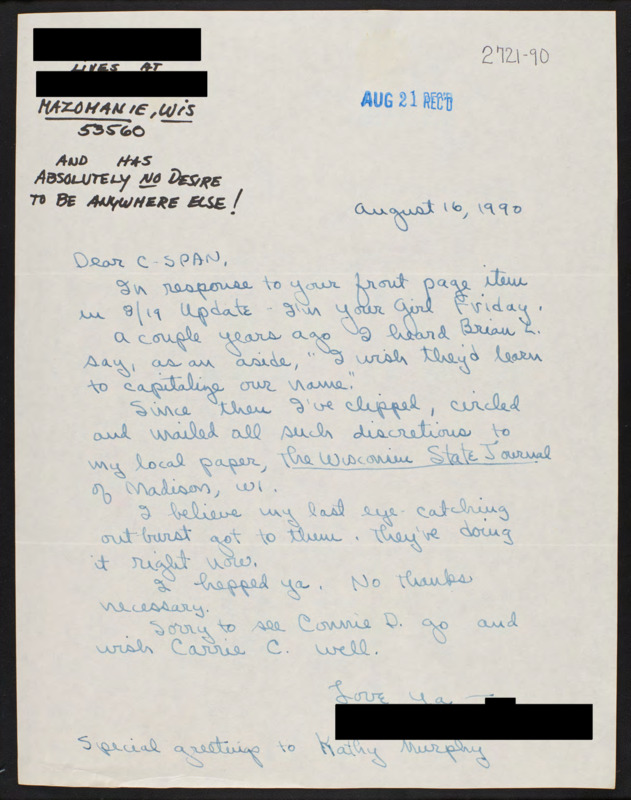 LIVES AT
MAZOMANIE, WIS
53560
AND HAS
ABSOLUTELY NO DESIRE
TO BE ANYWHERE ELSE!
2721-90
AUG 21 REC'D
August 16, 1990
Dear C-SPAN,
In response to your front page item
in 8/19 Update - I'm your Girl Friday.
A couple years ago I heard Brian L.
say, as an aside, "I wish they'd learn
to capitalize our name."
Since then I've clipped, circled
and mailed all such discretions to
my local paper, The Wisconsin State Journal
of Madison, WI.
I believe my last eye-catching
outburst got to them. They've doing
it right now.
I hepped ya. No thanks
necessary.
Sorry to see Connie D. go and
wish Carrie C. well.
Love ya —
Special greetings to Kathy Murphy